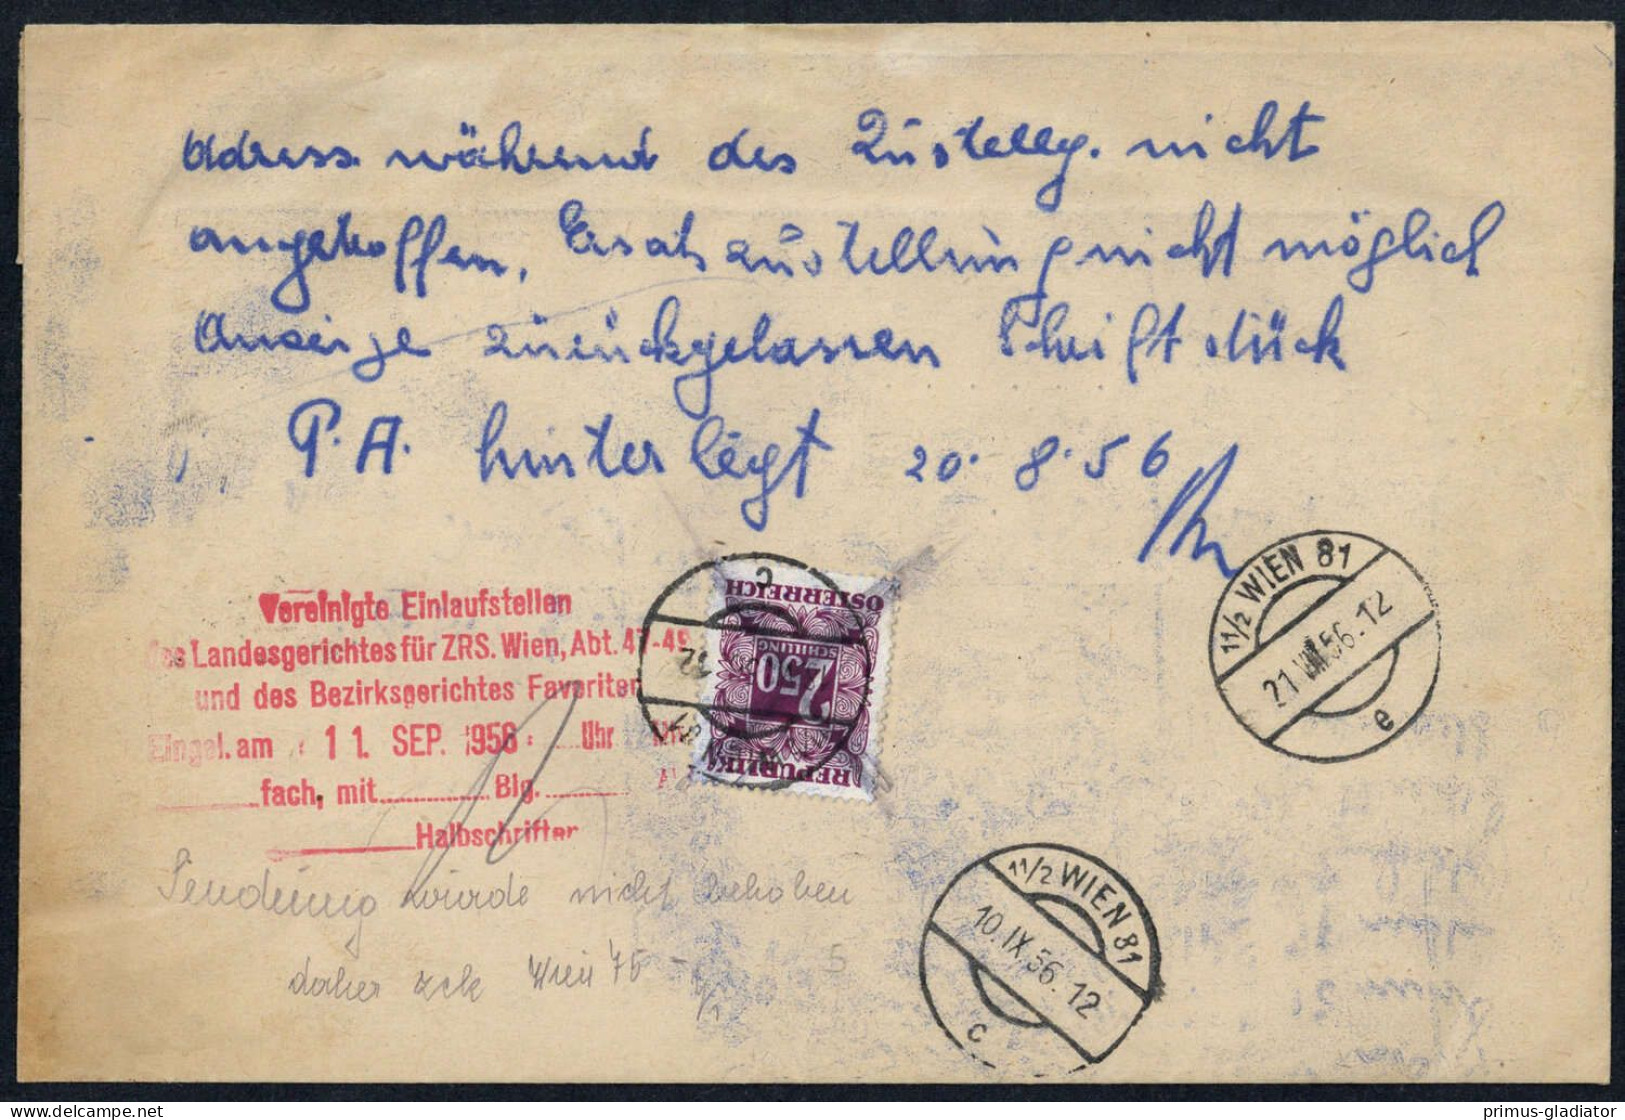 Adress. während des Zustellg. nicht
angetroffen, Ersatzzustellung nicht möglich
Anzeige zurückgelassen Schriftstück
P. A. hinterlegt 20. 8. 56
11/2 WIEN 81
21. VIII. 56. 12
e
REPUBLIK
2 50
SCHILLING
ÖSTERREICH
c
Vereinigte Einlaufstellen
des Landesgerichtes für ZRS. Wien, Abt. 47-49
und des Bezirksgerichtes Favoriten
Eingel. am 11. SEP. 1956 Uhr
fach, mit Blg.
Halbschriften
Sendung wurde nicht behoben
daher zck Wien 75
11/2 WIEN 81
10. IX. 56. 12
c
primus-gladiator